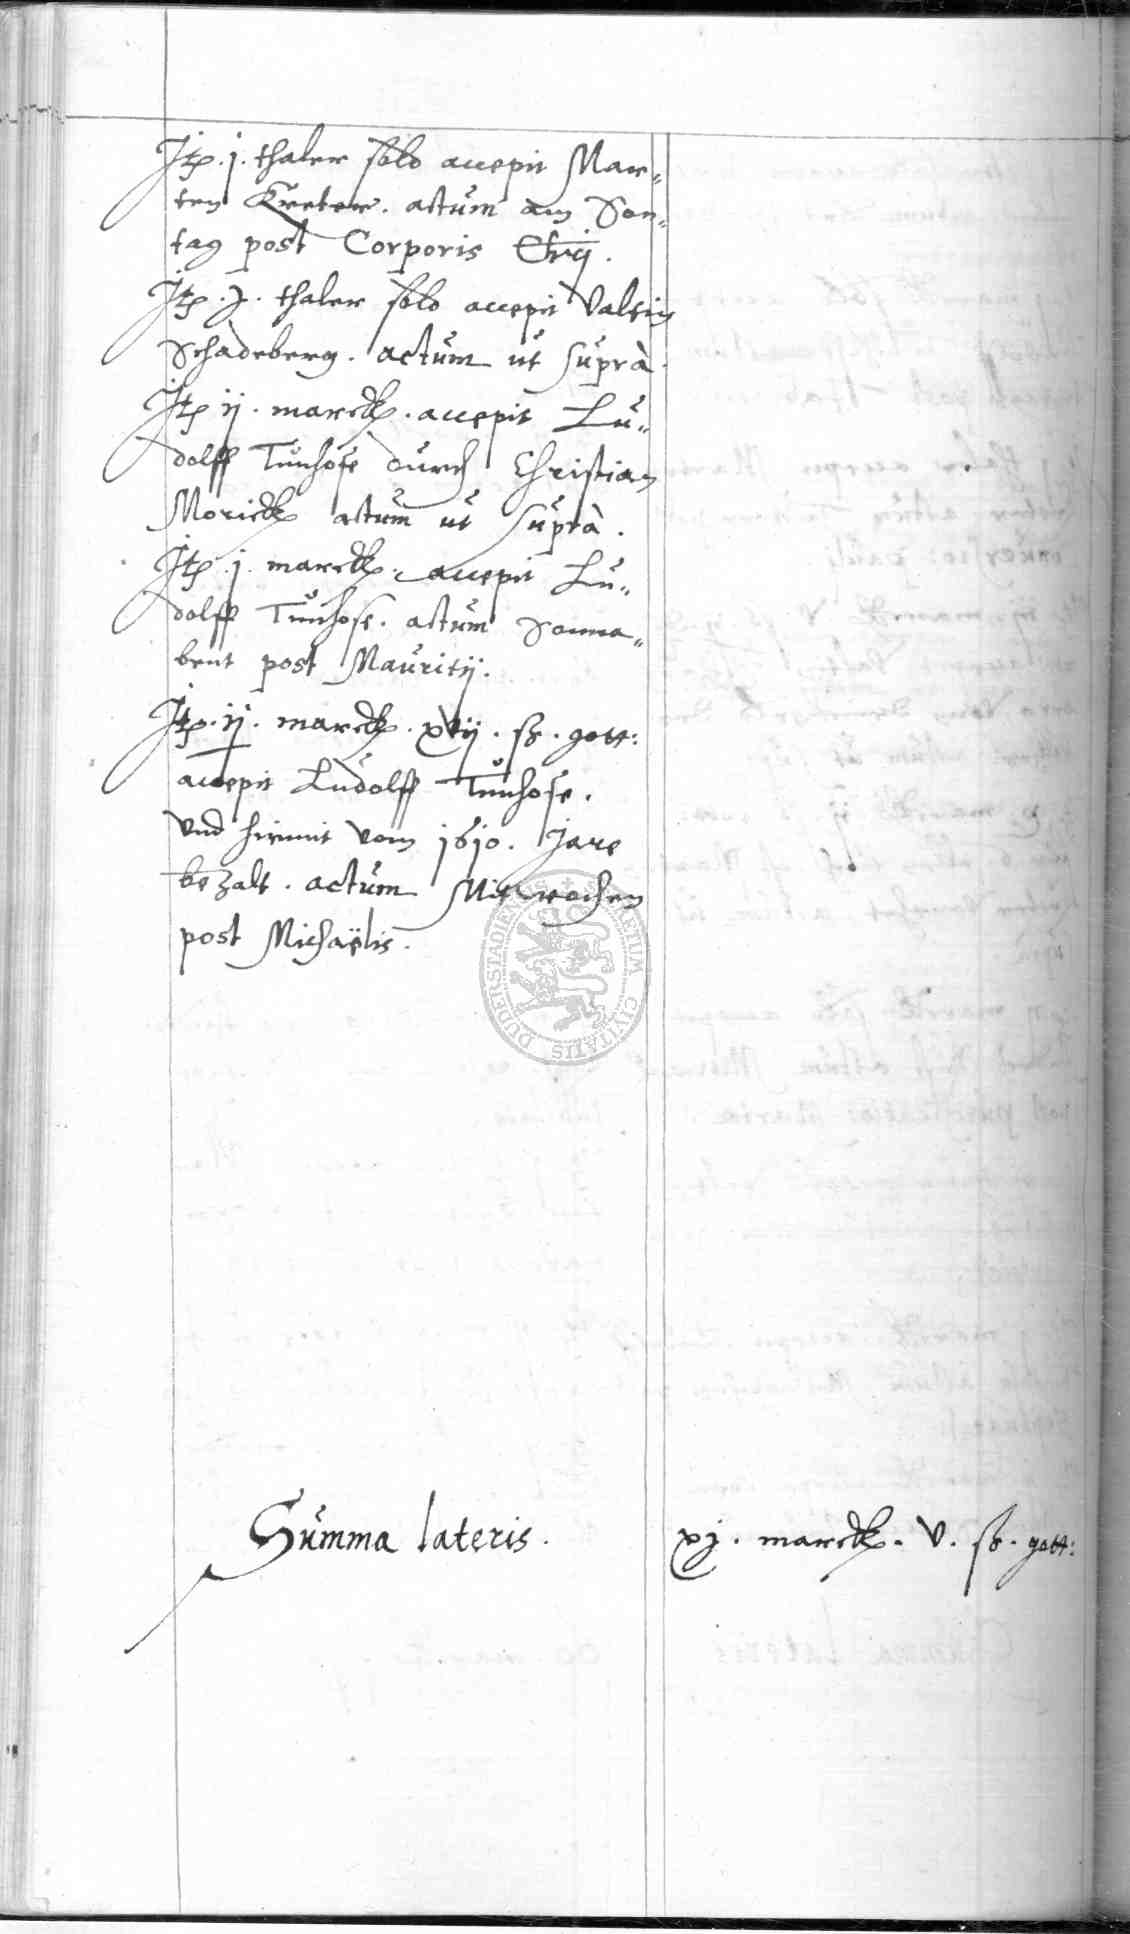 Jtz. j. thaler solo accepit Mar„
ten Kreter. actum am Son„
tag post Corporis Chrj.
Jtz. j. thaler solo accepit Valtin
Schadeberg. actum ut supra.
Jtz ij. marck. accepit Lu„
dolff Tunhose durch Christian
Morick actum ut supra.
Jtz. j. marck. accepit Lu„
dolff Tunhose. actum Sonna„
bent post Mauritij.
Jtz. ij. marck. xvij. ß. gott:
accepit Ludolff Tunhose.
Vnd hirmit vom 1610. Jare
bezalt. actum Mitwochen
post Michaëlis.
SIGILLUM CIVITATIS DUDERSTADIENSIS
Summa lateris. xj. marck. v. ß. gott: